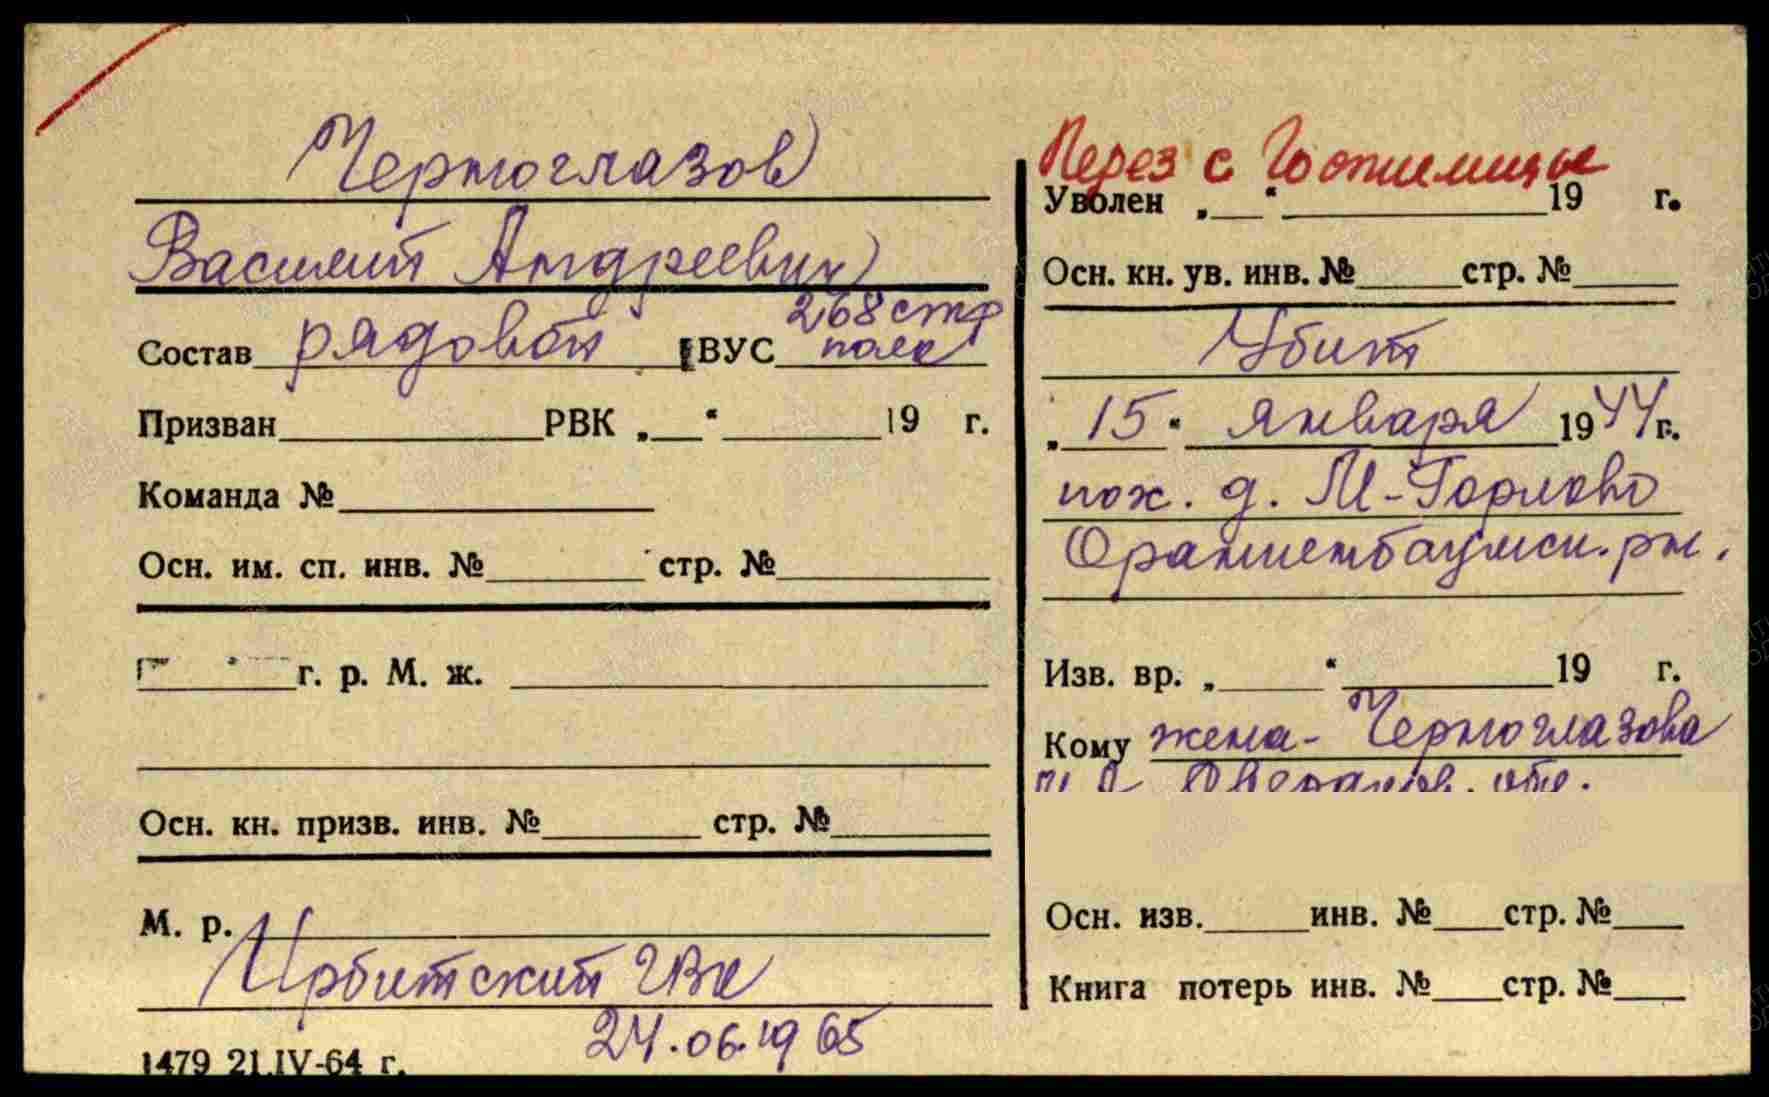 Черноглазов
Василий Андреевич
Состав рядовой ВУС 268 стр
полк
Призван РВК „ “ 19 г.
Команда №
Осн. им. сп. инв. № стр. №
г. р. М. ж.
Осн. кн. призв. инв. № стр. №
М. р.
Ирбитский ГВК
24.06.1965
1479 21.IV-64 г.
Перез с Гостилицы
Уволен „ “ 19 г.
Осн. кн. ув. инв. № стр. №
Убит
„15“ января 1944 г.
пох. д. М-Горлово
Ораниенбаумск. рн.
Изв. вр. „ “ 19 г.
Кому жена- Черноглазова
обл.
Осн. изв. инв. № стр. №
Книга потерь инв. № стр. №